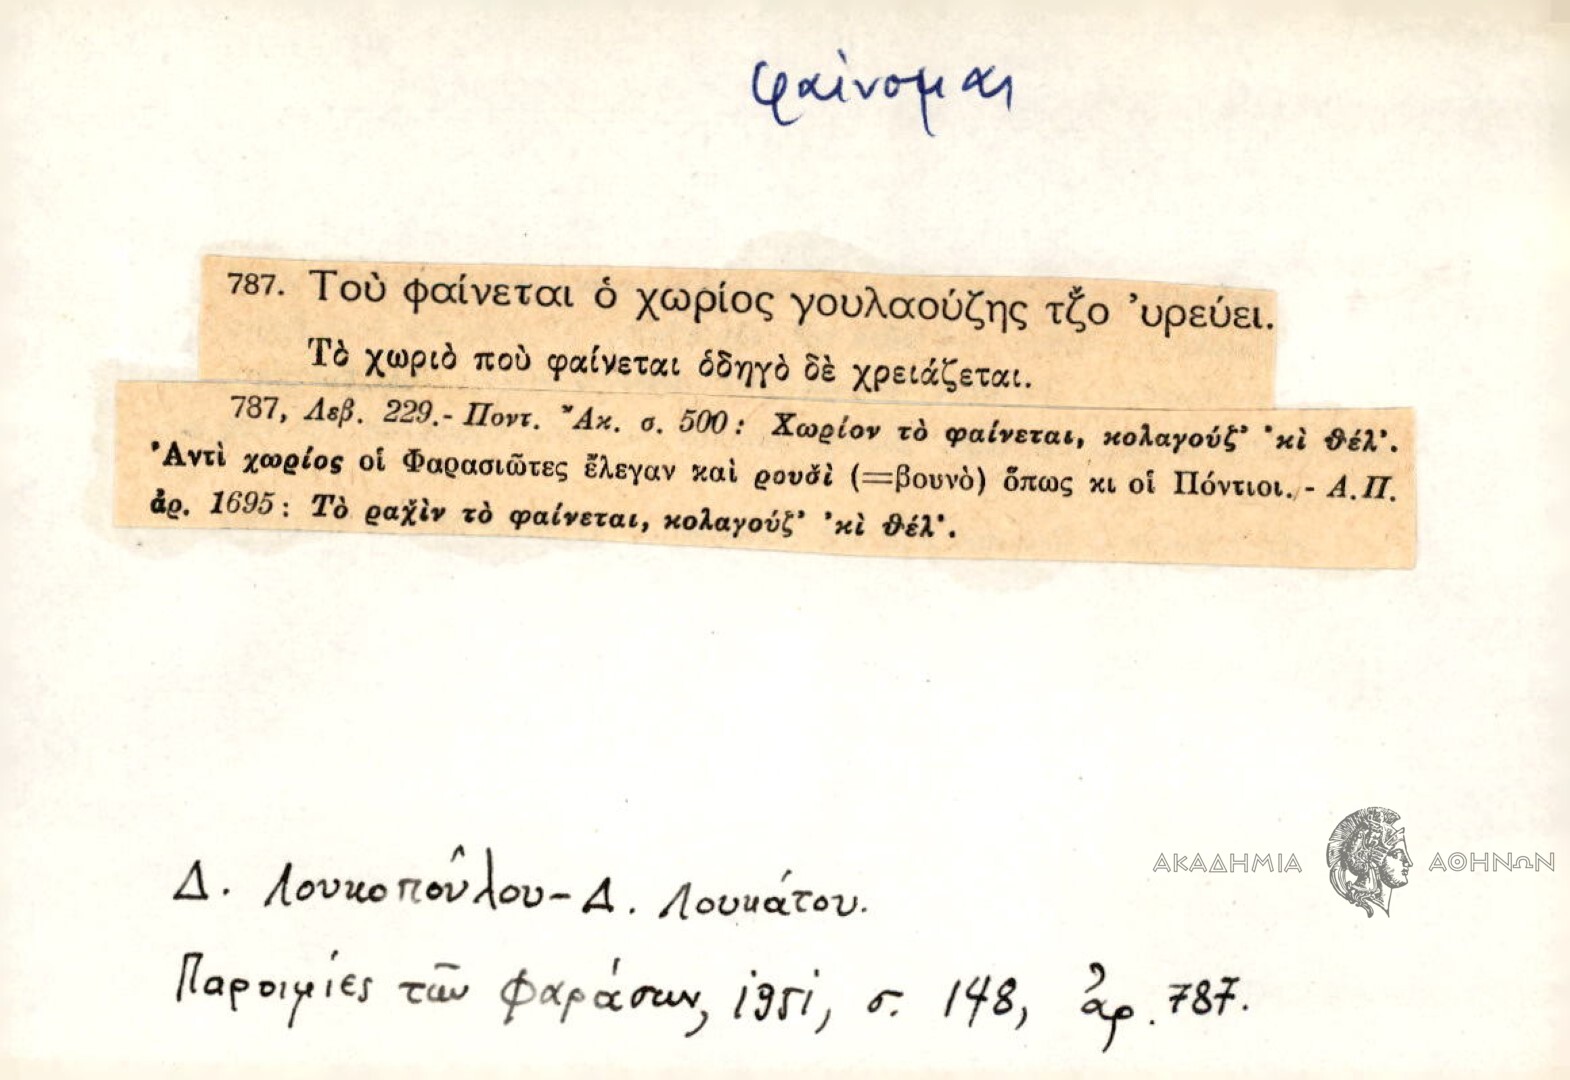 φαίνομαι
787. Τοὺ φαίνεται ὁ χωρίος γουλαούζης τζ̌ο ’υρεύει.
Τὸ χωριὸ ποὺ φαίνεται ὁδηγὸ δὲ χρειάζεται.
787, Λεβ. 229.- Ποντ. Ἄκ. σ. 500: Χωρίον τὸ φαίνεται, κολαγούζ’ ’κὶ θέλ’.
Ἀντὶ χωρίος οἱ Φαρασιῶτες ἔλεγαν καὶ ρουσ̌ὶ (=βουνὸ) ὅπως κι οἱ Πόντιοι. - Α.Π.
ἀρ. 1695: Τὸ ραχ̌ὶν τὸ φαίνεται, κολαγούζ’ ’κὶ θέλ’.
ΑΚΑΔΗΜΙΑ ΑΘΗΝΩΝ
Δ. Λουκοπούλου - Δ. Λουκάτου.
Παροιμίες τῶν Φαράσων, 1951, σ. 148, ἀρ. 787.